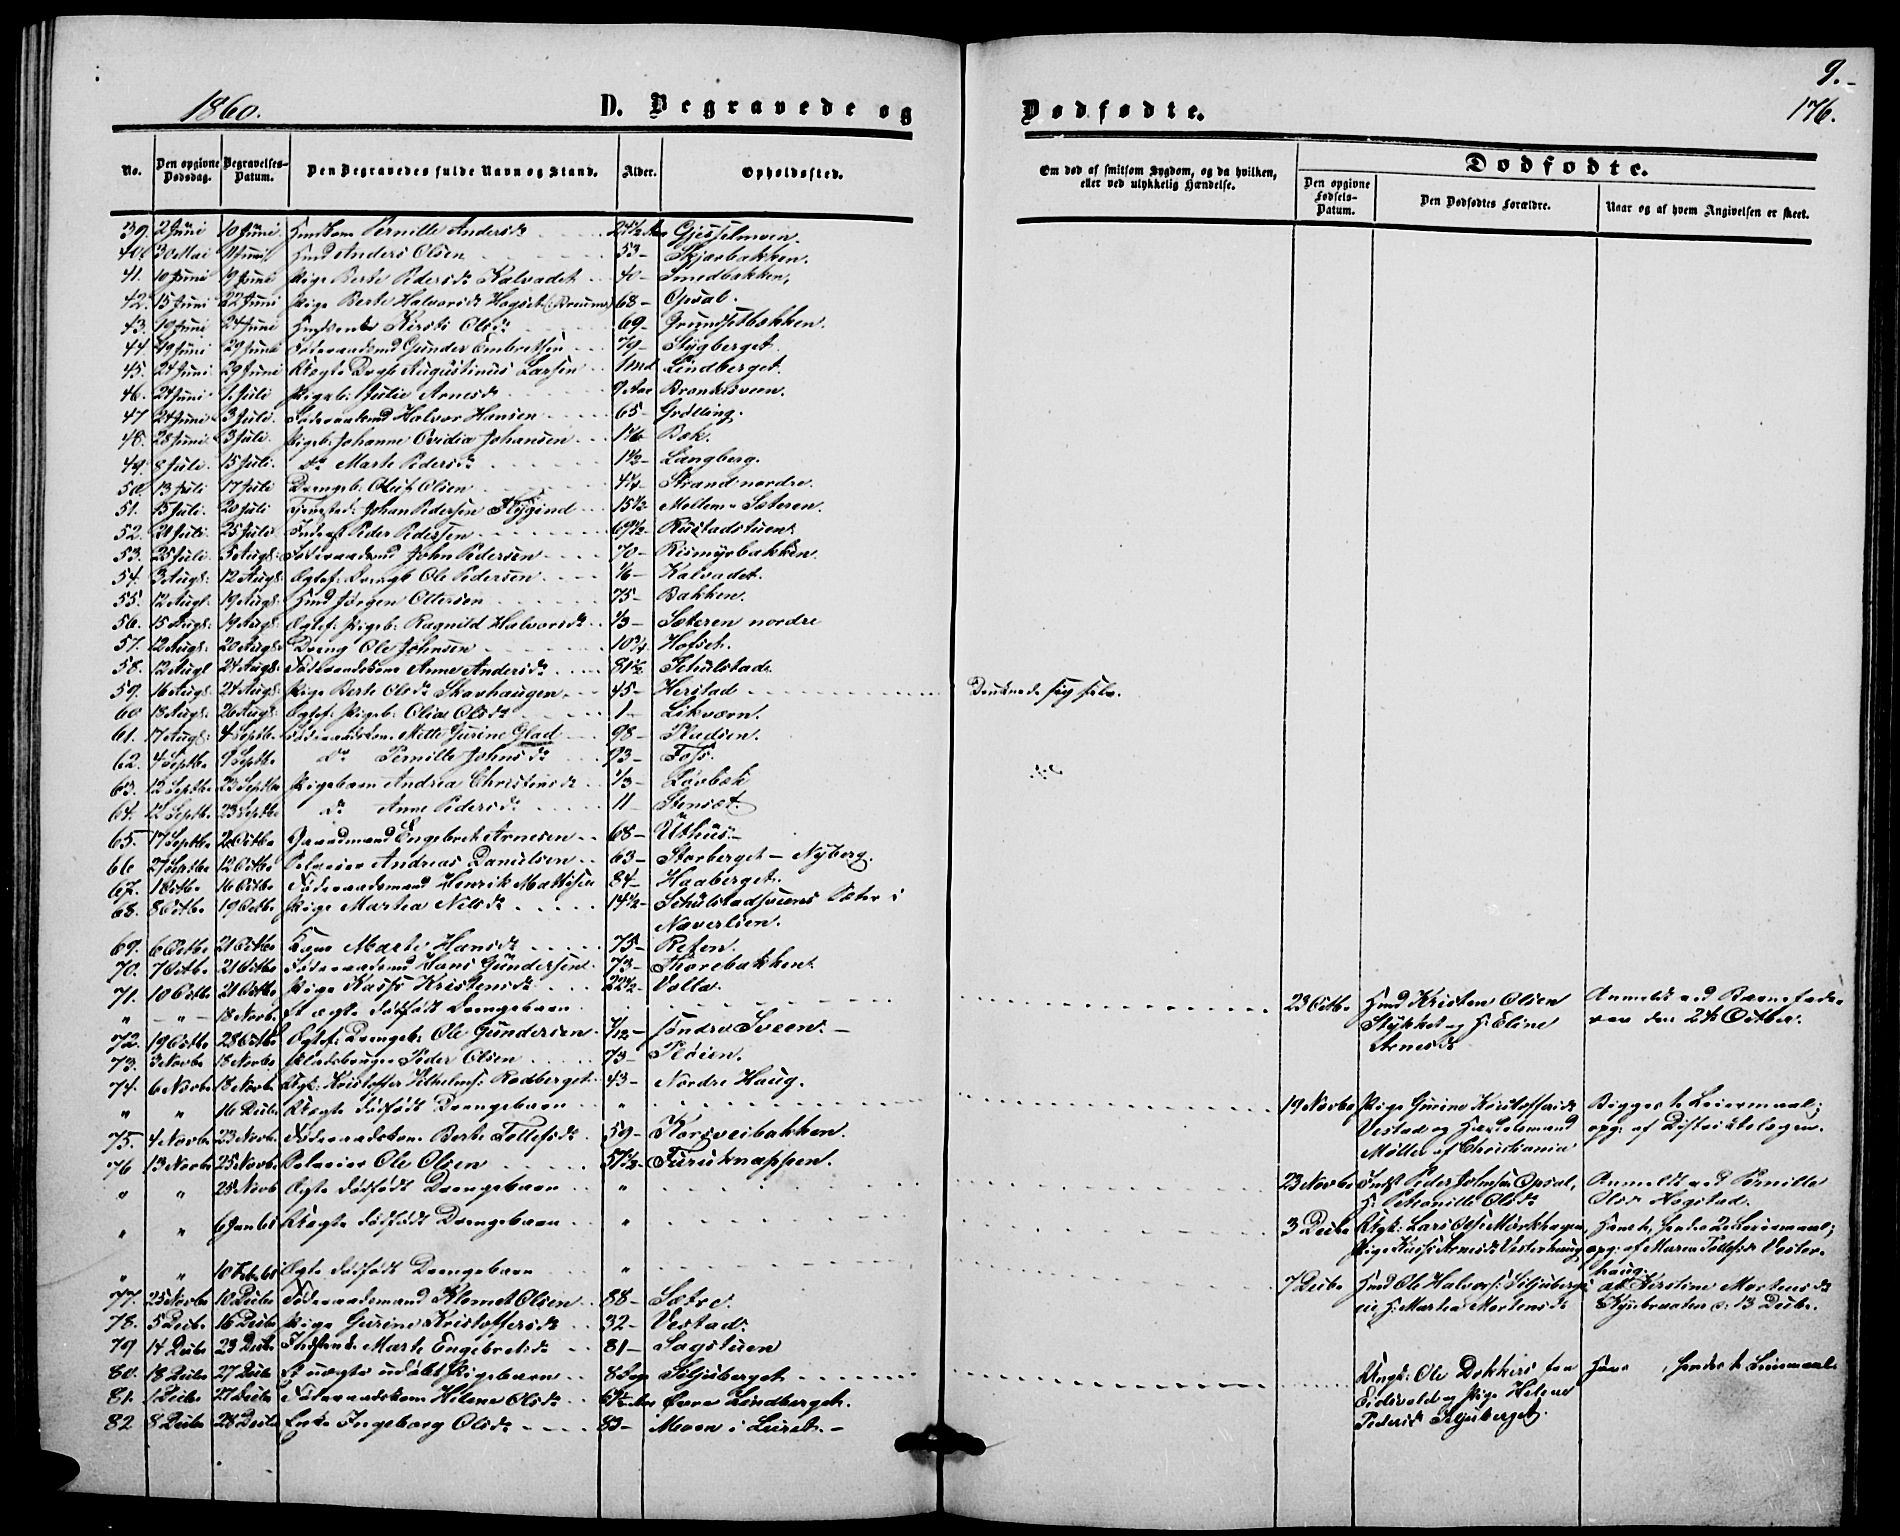 9.-
1860. D. Begravede og Dødfødte. 176.
No. Den opgivne Dødsdag. Begravelses-Datum. Den Begravedes fulde Navn og Stand. Alder. Opholdssted. Om død af smitsom Sygdom, og da hvilken, eller ved ulykkelig Hændelse. Dødfødte. Den opgivne Fødsels-Datum. Den Dødfødtes Forældre. Naar og af hvem Angivelsen er skeet.
39. 2 Juni 10 Juni Pernille Andersd Gjesselmoen.
40. 30 Mai Juni Hmd Anders Olsen 53 - Skjærbakken.
41. 10 Juni 19 Juni Pige Berte Pedersd Kalvadet 40 - Smedbakken,
42. 15 Juni 22 Juni Pige Berte Halvorsd 68 - Opsal.
43. 19 Juni 24 Juni Kirsti Olsd 69 - Grundsetbakken.
44. 19 Juni 29 Juni Føderaadsmd Gunder Embretsen 79 - Stygberget.
45. 24 Juni 29 Juni Uægte Drgb Augustinus Larsen 1 Md Lindberget.
46. 24 Juni 1 Juli Pigeb: Julie Arnesd
47 24 Juni 3 Juli Føderaadsmd Halvor Hansen 65 - Grötting.
48. 28 Juni 3 Juli Pigeb: Johanne Ovidia Johansen Bak.
49. 8 Juli 15 Juli. do Marte Pedersd 1½ - Langberg.
50. 13 Juli 17 Juli Drengeb. Oluf Olsen Strand nordre.
51. 15 Juli 20 Juli Johan Pedersen Flygind 15½ Mellem-Sæteren.
52. 21 Juli 25 Juli Inderst Peder Pedersen 69½ - Rustadstuen.
53. 25 Juli 5 Augs: Føderaadsmd John Pedersen 70 - Rismyrbakken.
54. 3 Augs: 12 Augs: Ægtef: Drengb Ole Pedersen Kalvadet.
55. 12 Augs. 19 Augs: Hmd Jørgen Ottersen 75 - Bakken.
56. 15 Augs: 19 Augs: Ægtef: Pigeb: Ragnild Halvorsd 1/3 - Sæteren nordre
57. 12 Augs: 20 Augs: Dreng Ole Johnsen 10¾ Hofset.
58. 12 Augs 24 Augs: Føderaadskone Anne Andersd 81½ Schulstad.
59. 16 Augs: 24 Augs: Pige Berte Olsd Skavhaugen. 45 - Herstad Druknede sig selv.
60 18 Augs: 26 Augs: Ægtef: Pigeb: Oline Olsd 1 - Likværn.
61. 17 Augs: 4 Septbr Føderaadskone Mette Gurine Glad 98 - Pladsen.
62. 4 Septbr 9 Septbr do Pernille Johnsd 93 - Foss.
63. 12 Septbr 23 Septbr Pigebarn Andrea Christensd 1/3 - Løvbæk
64. 12 Septbr 23 Septbr do Anne Pedersd 11 Stenset.
65. 17 Septbr 2 Octbr Gaardmand Engebret Arnesen 68 - Uthus.-
66 27 Septbr 12 Octbr Pelseier Andreas Danielsen 63 - Storberget - Nyberg.
67. 1 Octbr 16 Octbr Føderaadsmand Henrik Mathisen 84 - Haaberget.
68. 8 Octbr 19 Octbr Pige Martea Nilsd 14½ - Schulstadsveens Sæter i
Naverlien.
69. 6 Octbr 21 Octbr Kone Marte Hansd 75 - Reten.
70. 7 Octbr 21 Octbr Føderaadsmd Hans Gundersen 73 - Thorebakken.
71. 10 Octbr 21 Octbr Pige Kassi Kristensd 22½ - Volla.
" - " - 18 Novbr Et ægte dødfødt Drengebarn 23 Octbr Hmd Kristen Olsen Stykket og H: Eline Arnesd Anmeldt ved Barnefaderen den 24 October.
72. 19 Octbr 28 Octbr Ægtef: Drengeb: Ole Gundersen søndre Sveen. -
73. 3 Novbr 18 Novbr Pladsbruger Peder Olsen 73 - Pløien.
74. 6 Novbr 18 Novbr Ugk: Kristoffer Vilhelms: Rodberget 43 - Nordre Haug.
" " 16 Decbr Uægte dødfødt Drengebarn " 19 Novbr Pige Gurine Kristoffersd Vestad og Handelsmand Møller af Christiania Begges 1te Leiermaal; opg: af Districtslægen.
75. 4 Novbr 23 Novbr Føderaadskone Berte Tollefsd 59 - Korsveibakken.
76 13 Novbr 25 Novbr Pelseier Ole Olsen 57½ - Furuknappen.
" " 25 Novb Ægte dødfødt Drengebarn " 23 Novbr Indst Peder Johnsen Opsal, H: Petronille Olsd Anmeldt ved Pernille Olsd Hagstad.
" " 6 Jan 61 Uægte dødfødt Drengebarn " 3 Decbr Ugk: Lars Olss Myrkhagen, Pige Kassi Arnesd Vesterhaug 2 Leiermaal; opg: af Maren Tollefsd Vesterhaug.
" " 10 Feb 61 Ægte dødfødt Drengebarn " 7 Decbr Hmd Ole Halvors: Siljuberget og H: Martea Mortensd af Kirstine Mortensd 13 Decbr.
77. 25 Novbr 10 Decbr Føderaadsmand Klemet Olsen 88 - Sætre.
78. 5 Decbr 16 Decbr Pige Gurine Kristoffersd 32 - Vestad.
79 14 Decbr 23 Decbr Marte Engebretsd 81 - Sagstuen
80. 18 Decbr 27 Decbr Et uægte udøbt Pigebarn 8 Dage Siljuberget Ungk: Ole Dokkers fra Eidsvold og Pige Helene Pedersd Siljuberget. Hans , hendes 1te Leiermaal
81. 1 Decbr 27 Decbr Føderaadskone Helene Olsd øvre Lindberget.
82 8 Decbr 28 Decbr Enke Ingeborg Olsd 83 - Moen i Luset. -